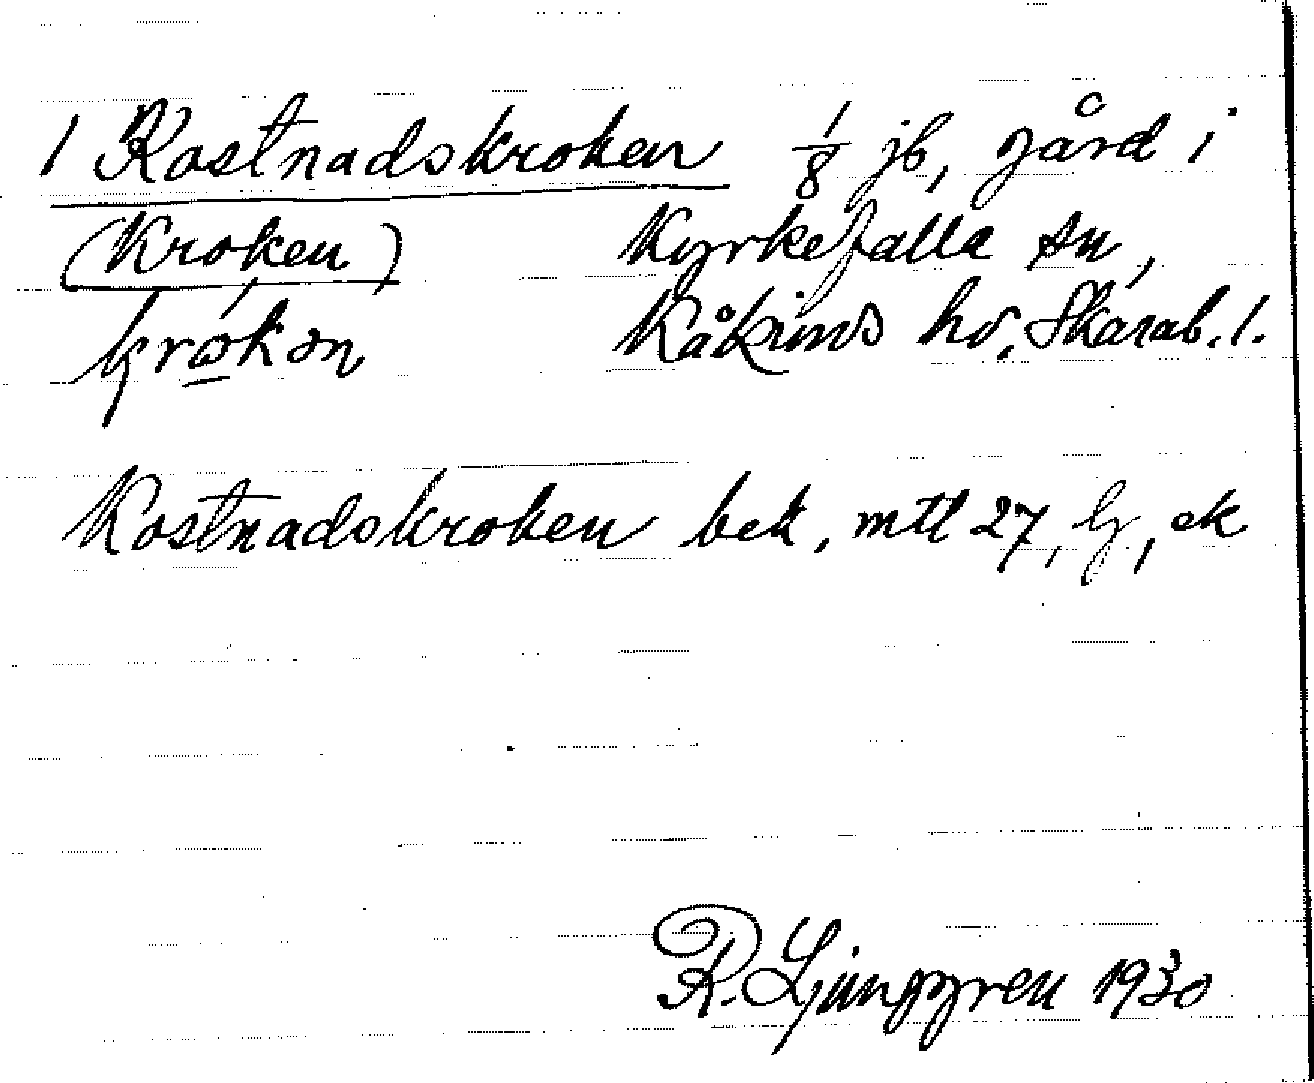 1 Kostnadskroken 1/8 jb, gård i
(Kroken) Kyrkefalla sn,
krøkən Kåkinds hd, Skarab. l.
Kostnadskroken bek, mtl 27, lj, ek
R. Ljunggren 1930